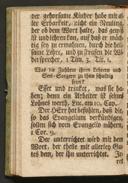 der gehorsame Kinder habe mit al-
ler Erbarkeit, nicht ein Neuling,
der ob dem Wort halte, das gewiß
ist, und lehren kan, auf daß er mäch-
tig sey zu ermahnen, durch die heil-
same Lehre, und zu strafen die Wi-
dersprecher, 1 Tim. 3. Tit. 1.
Was die Zuhörer ihren Lehrern und
Seel-Sorgern zu thun schuldig
seyn?
Esset und trinket, was sie ha-
ben; denn ein Arbeiter ist seines
Lohnes werth, Luc. am 10. Cap.
Der HErr hat befohlen, daß die,
so das Evangelium verkündigen,
sollen sich vom Evangelio nähren,
1 Cor. 9.
Der unterrichtet wird mit dem
Wort, der theile mit allerley Gu-
tes, dem, der ihn unterrichtet.